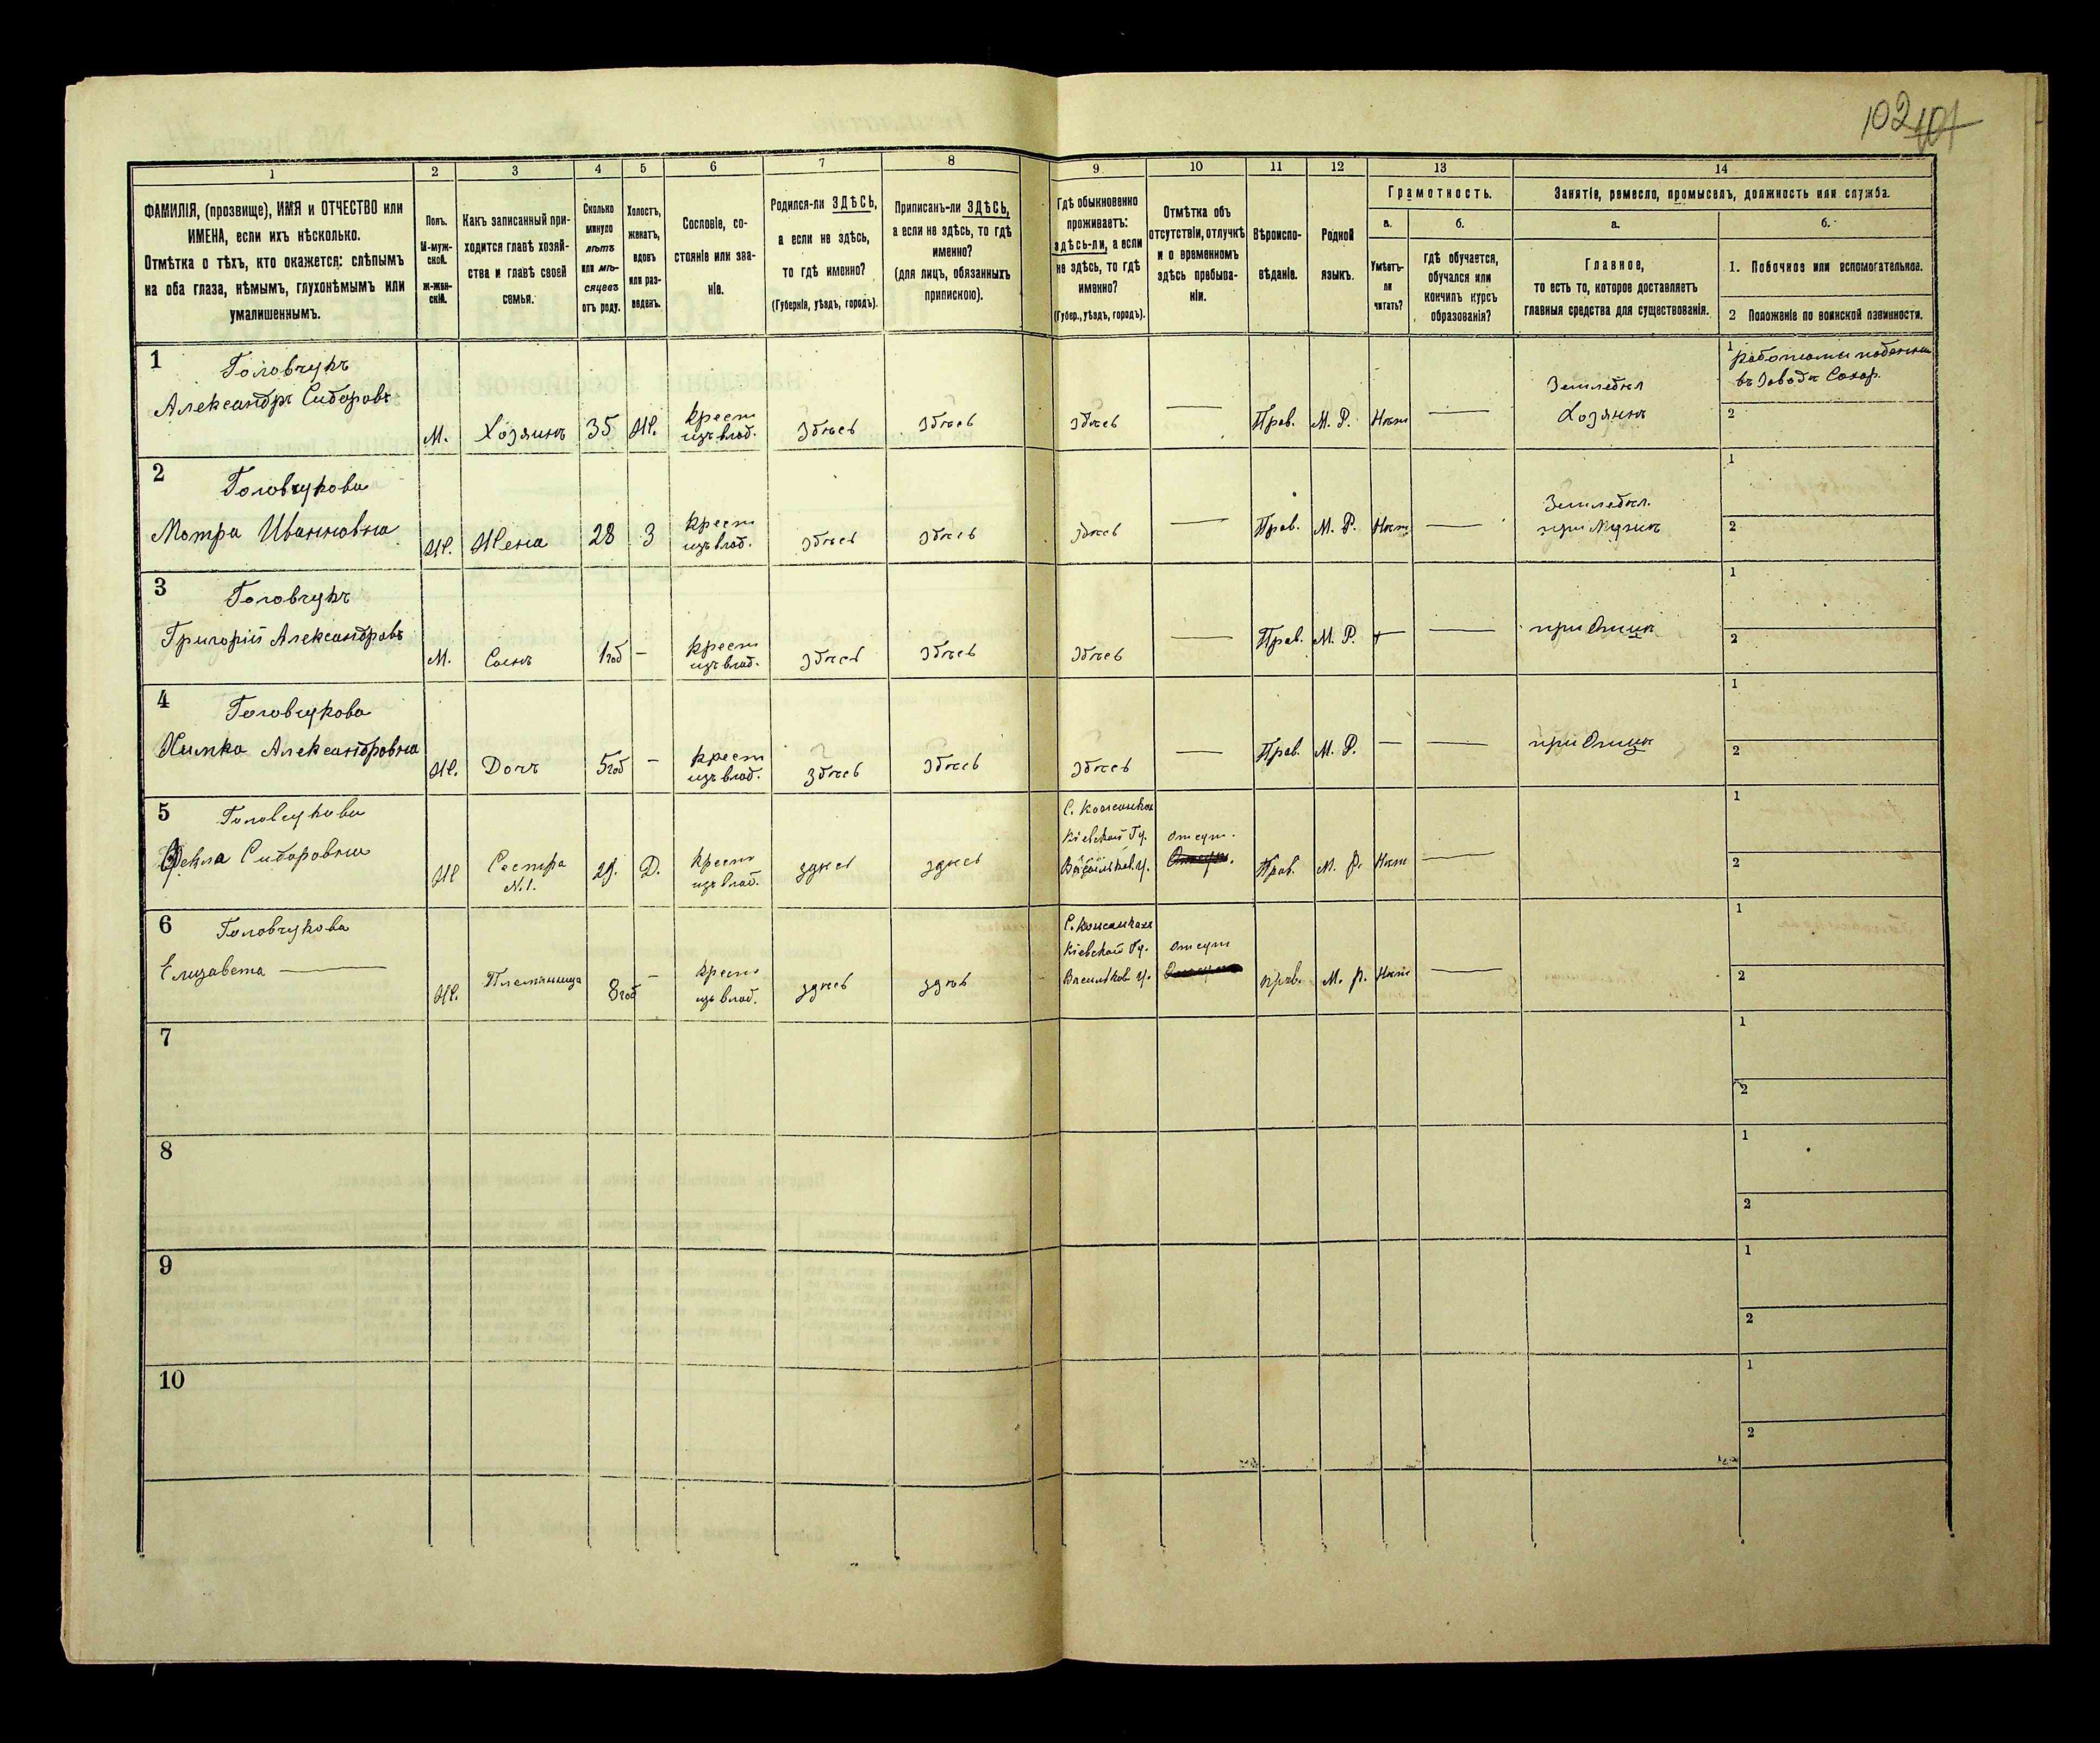 102 101
1
2
3
4
5
6
7
8
9
10
11
12
13
14
ФАМИЛІЯ, (прозвище), ИМЯ и ОТЧЕСТВО или
ИМЕНА, если ихъ нѣсколько.
Отмѣтка о тѣхъ, кто окажется: слѣпымъ
на оба глаза, нѣмымъ, глухонѣмымъ или
умалишеннымъ.
Полъ.
М-муж-
ской.
Ж-жен-
скій.
Какъ записанный при-
ходится главѣ хозяй-
ства и главѣ своей
семьи.
Сколько
минуло
лѣтъ
или мѣ-
сяцевъ
отъ роду.
Холостъ,
женатъ,
вдовъ
или раз-
веденъ.
Сословіе, со-
стояніе или зва-
ніе.
Родился-ли ЗДѢСЬ,
а если не здѣсь,
то гдѣ именно?
(Губернія, уѣздъ, городъ).
Приписанъ-ли ЗДѢСЬ,
а если не здѣсь, то гдѣ
именно?
(для лицъ, обязанныхъ
припискою).
Гдѣ обыкновенно
проживаетъ:
здѣсь-ли, а если
не здѣсь, то гдѣ
именно?
(Губер., уѣздъ, городъ).
Отмѣтка объ
отсутствіи, отлучкѣ
и о временномъ
здѣсь пребыва-
ніи.
Вѣроиспо-
вѣданіе.
Родной
языкъ.
Грамотность.
а.
Умѣетъ-
ли
читать?
б.
гдѣ обучается,
обучался или
кончилъ курсъ
образованія?
Занятіе, ремесло, промыселъ, должность или служба.
а.
Главное,
то есть то, которое доставляетъ
главныя средства для существованія.
б.
1. Побочное или вспомогательное.
2 Положеніе по воинской повинности.
1
Головчукъ
Александръ Сидоровъ
М.
Хозяинъ
35
Ж.
крест
изъ влад.
Здѣсь
Здѣсь
здѣсь
—
Прав.
М. Р.
Нѣт
—
Земледѣл
Хозяинъ
1
въ Заводѣ Сахар.
2
2
Головчукова
Мотра Ивановна
Ж.
Жена
28
З
крест
изъ влад.
Здѣсь
Здѣсь
Здѣсь
—
Прав.
М. Р.
Нѣт
—
Земледѣл.
при Мужѣ
1
2
3
Головчукъ
Григорій Александровъ
М.
Сынъ
1 год
—
крест
изъ влад.
Здѣсь
Здѣсь
Здѣсь
—
Прав.
М. Р.
—
—
при Отцѣ
1
2
4
Головчукова
Химка Александровна
Ж.
Дочь
5 год
—
крест
изъ влад.
Здѣсь
Здѣсь
Здѣсь
—
Прав.
М. Р.
—
—
при Отцѣ
1
2
5
Головчукова
Фекла Сидоровна
Ж
Сестра
N.1.
29.
Д.
крест
изъ влад.
здѣсь
здѣсь
Кіевской Гу.
Васильков. у.
Отсут.
Прав.
М. Р.
Нѣт
—
1
2
6
Головчукова
Елизавета —
Ж.
Племянница
8 год
—
крест
изъ влад.
здѣсь
здѣсь
Кіевской Гу.
Васильков у.
Отсут
прав.
М. Р.
Нѣт
—
1
2
7
1
2
8
1
2
9
1
2
10
1
2